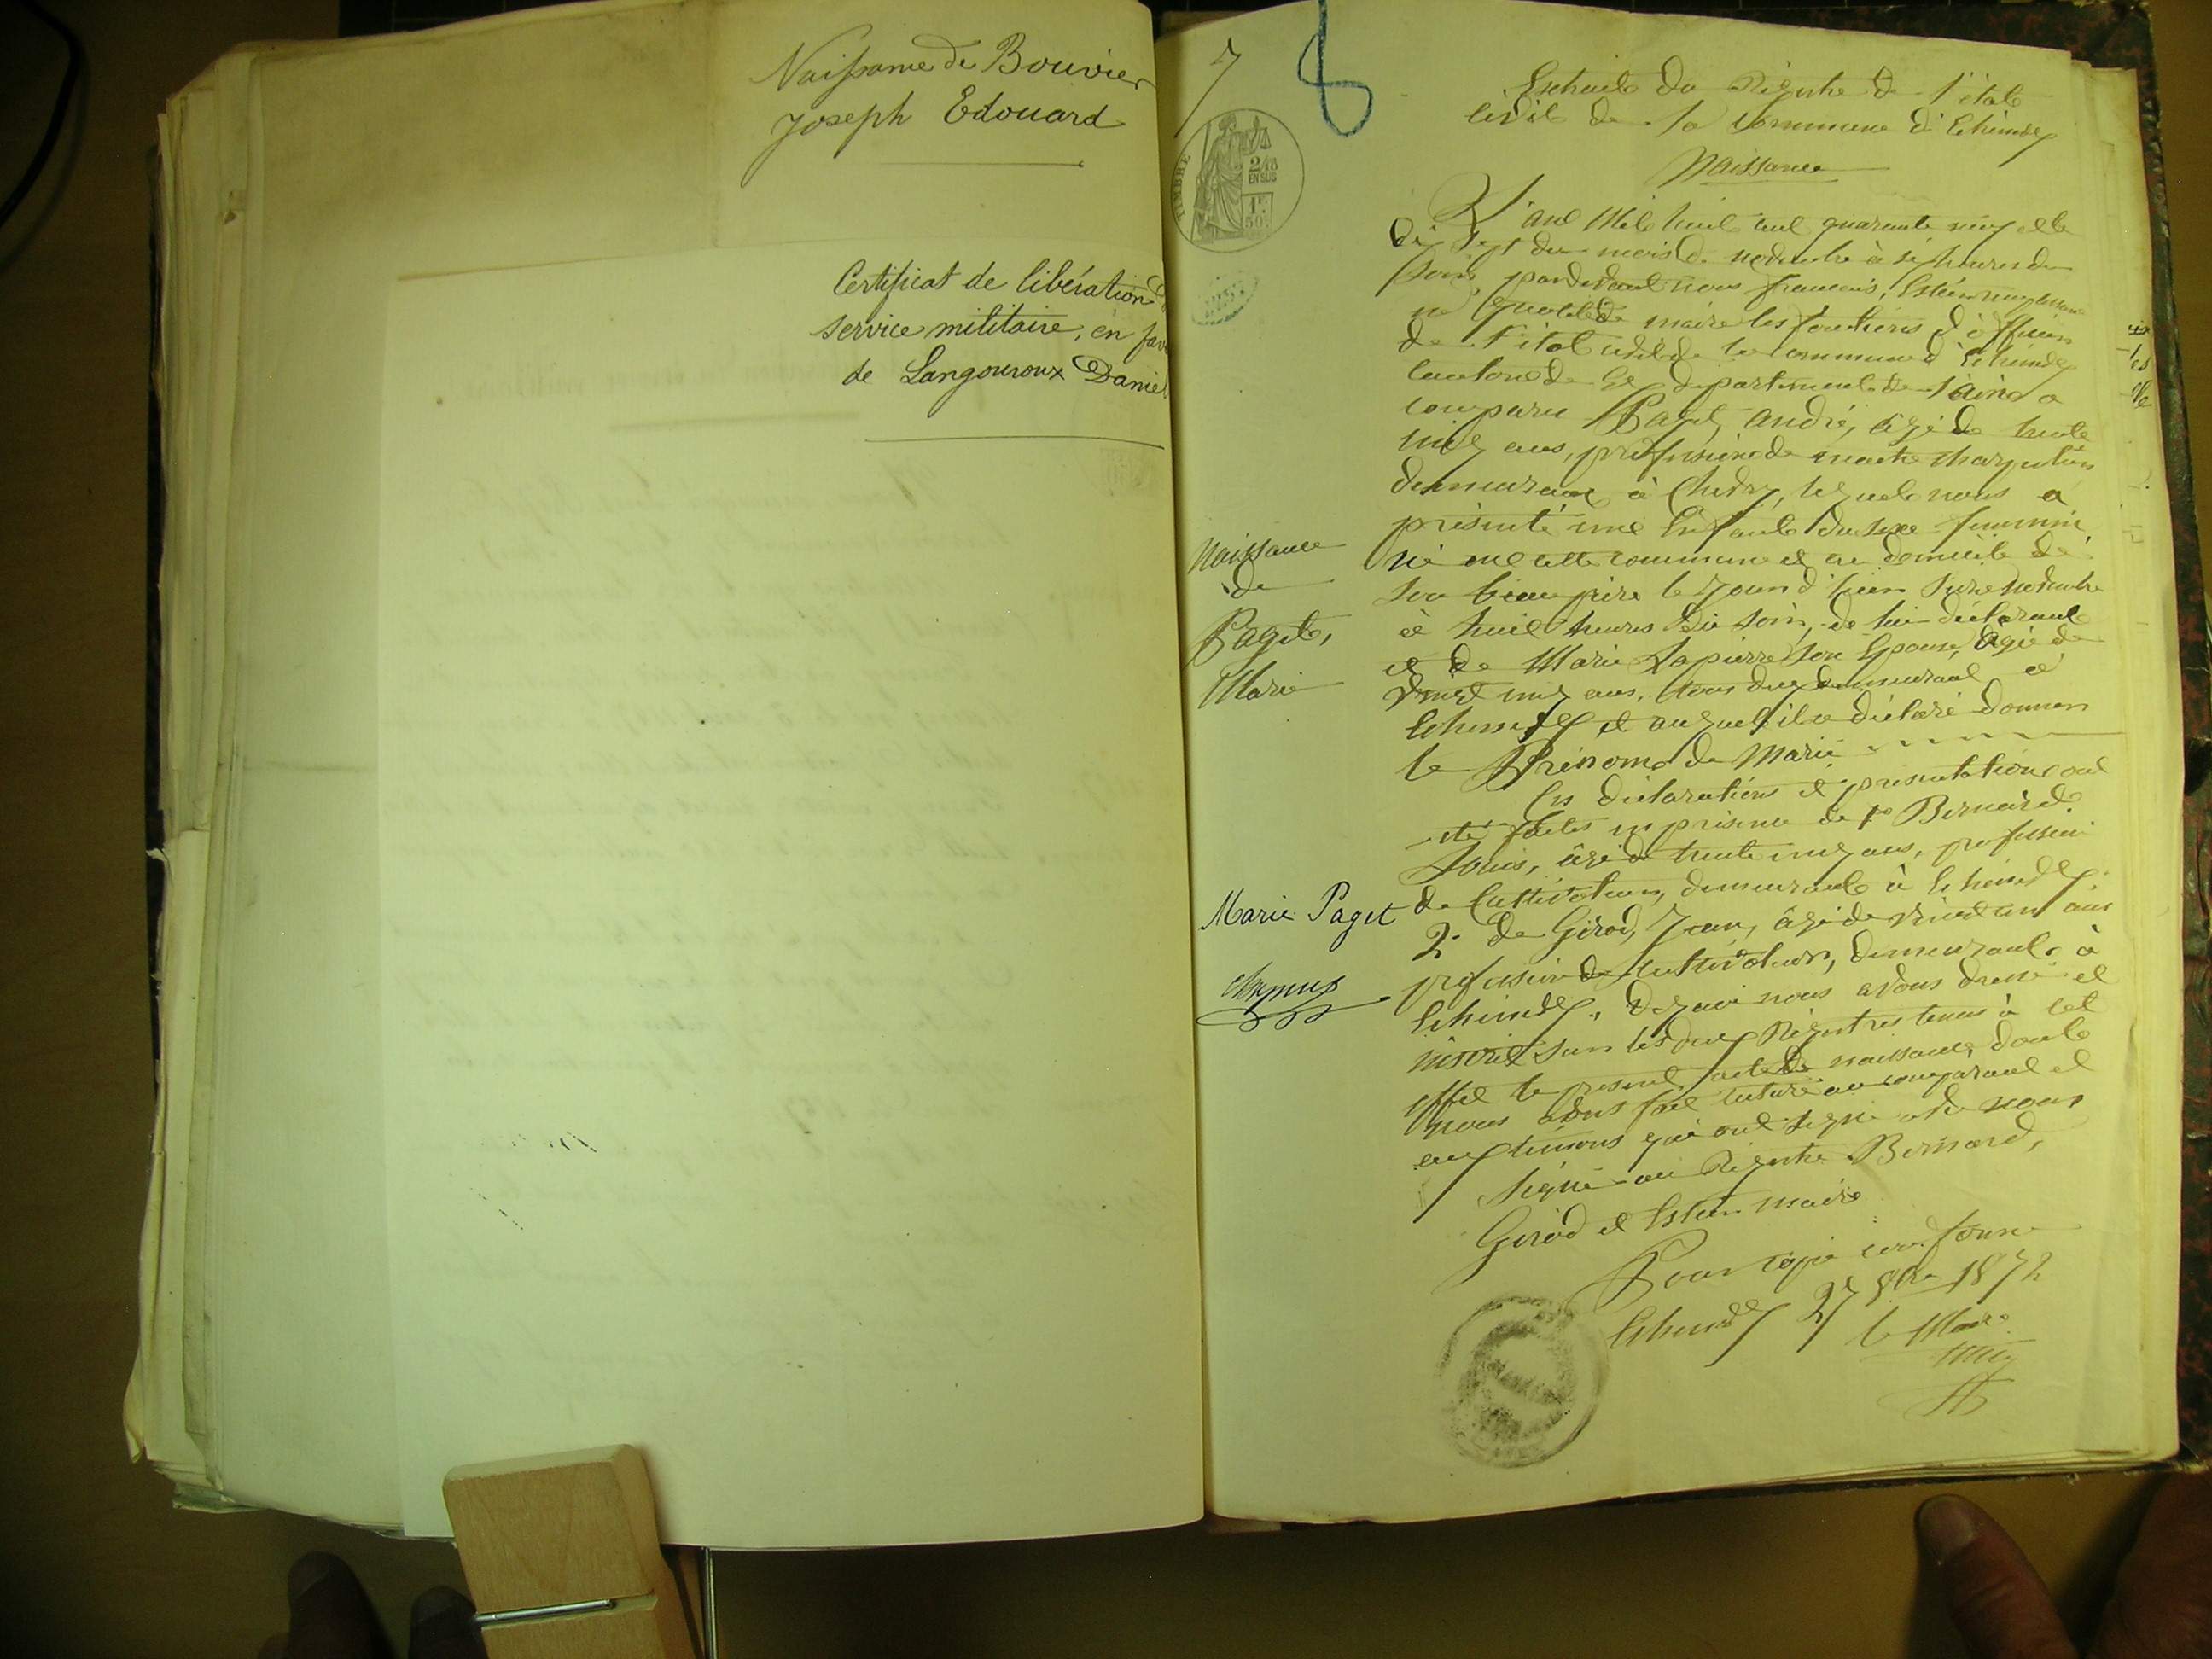 Naissance de Bouvier
Joseph Edouard
Certificat de libération d
service militaire, en fav
de Langouroux Daniel
7
8
TIMBRE
2/10
EN SUS
1F
50c
Extrait du Régistre de l'état
civil de la commune d'Echenevex
Naissance
L'an Mil huit cent quarante neuf et le
dix sept du mois de novembre à six heures du
soir, pardevant nous françois,
maire les fonctions d'officier
de l'état civil de la commune d'Echenevex
canton de Gex département de l'ain a
comparu Paget, andré, âgé de trente
neuf ans, profession de maitre charpentier
demeurant à Chevry, lequel nous a
présenté une Enfant du sexe feminin
né en cette commune et au domicile de
son beau père le jour d'hier seize novembre
à huit heures du soir, de lui déclarant
et de Marie Lapierre son Epouse, âgée de
vingt neuf ans, tous deux demeurant à
Echenevex et auquel il a déclaré donner
le Prénom de Marie
Ces déclarations et présentation ont
été faites en présence de 1º Bernard
Louis, âgé de trente neuf ans, profession
de Cultivateur, demeurant à Echenevex,
2º de Girod, Jean, âgé de vingt un ans
profession de cultivateur, demeurant à
Echenevex, De quoi nous avons dressé et
inscrit sur les deux Régistres tenus à cet
effet le présent acte de naissance, dont
nous avons fait lecture au comparant et
aux témoins qui ont signé avec nous
Signé au Régistre Bernard,
Girod et Estier maire
Pour copie conforme
Echenevex 27 8bre 1872
le Maire
Naissance
de
Paget,
Marie
Marie Paget